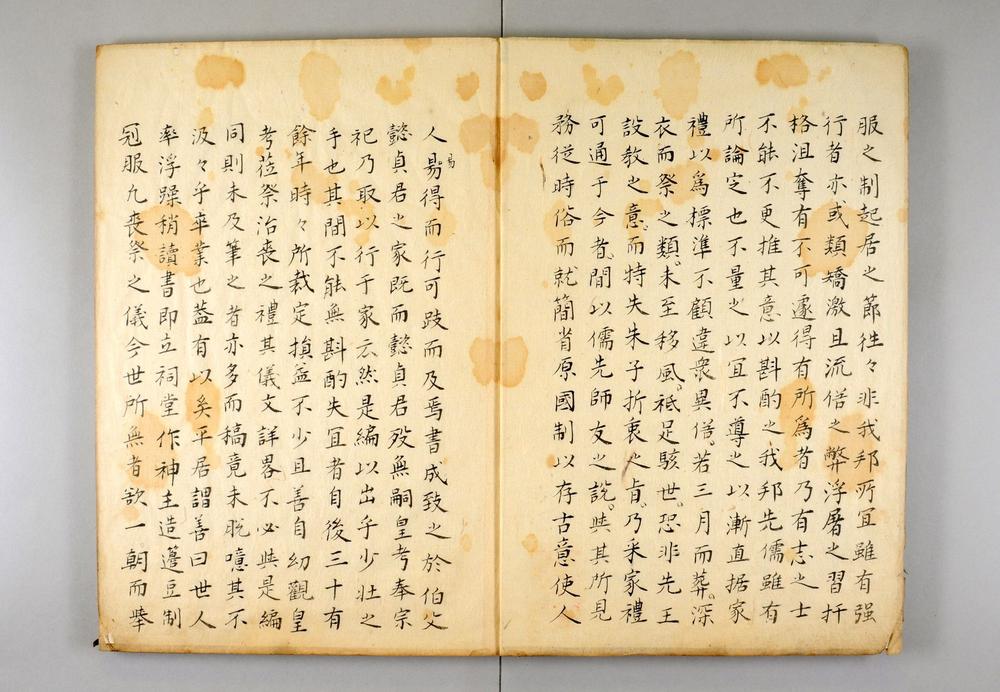 服之制起居之節徃々非我邦所宜雖有强
行者亦或類矯激且流俗之弊浮屠之習扞
格沮奪有不可遽得有所爲者乃有志之士
不能不更推其意以斟酌之我邦先儒雖有
所論定也不量之以宜不導之以漸直据家
禮以爲標準不顧違衆異俗若三月而葬深
衣而祭之類未至移風祗足駭世恐非先王
設教之意而特失朱子折衷之旨乃采家禮
可通于今者間以儒先師友之説與其所見
務従時俗而就簡省原國制以存古意使人
人易得而行可跂而及焉書成致之於伯父
懿貞君之家既而懿貞君歿無嗣皇考奉宗
祀乃取以行于家云然是編以出乎少壯之
手也其間不能無斟酌失宜者自後三十有
餘年時々所裁定損益不少且善自幼觀皇
考莅祭治喪之禮其儀文詳畧不必與是編
同則未及筆之者亦多而稿竟未脱噫其不
汲々乎卒業也蓋有以矣平居謂善曰世人
率浮躁稍讀書即立祠堂作神主造籩豆制
冠服凡喪祭之儀今世所無者欲一朝而擧